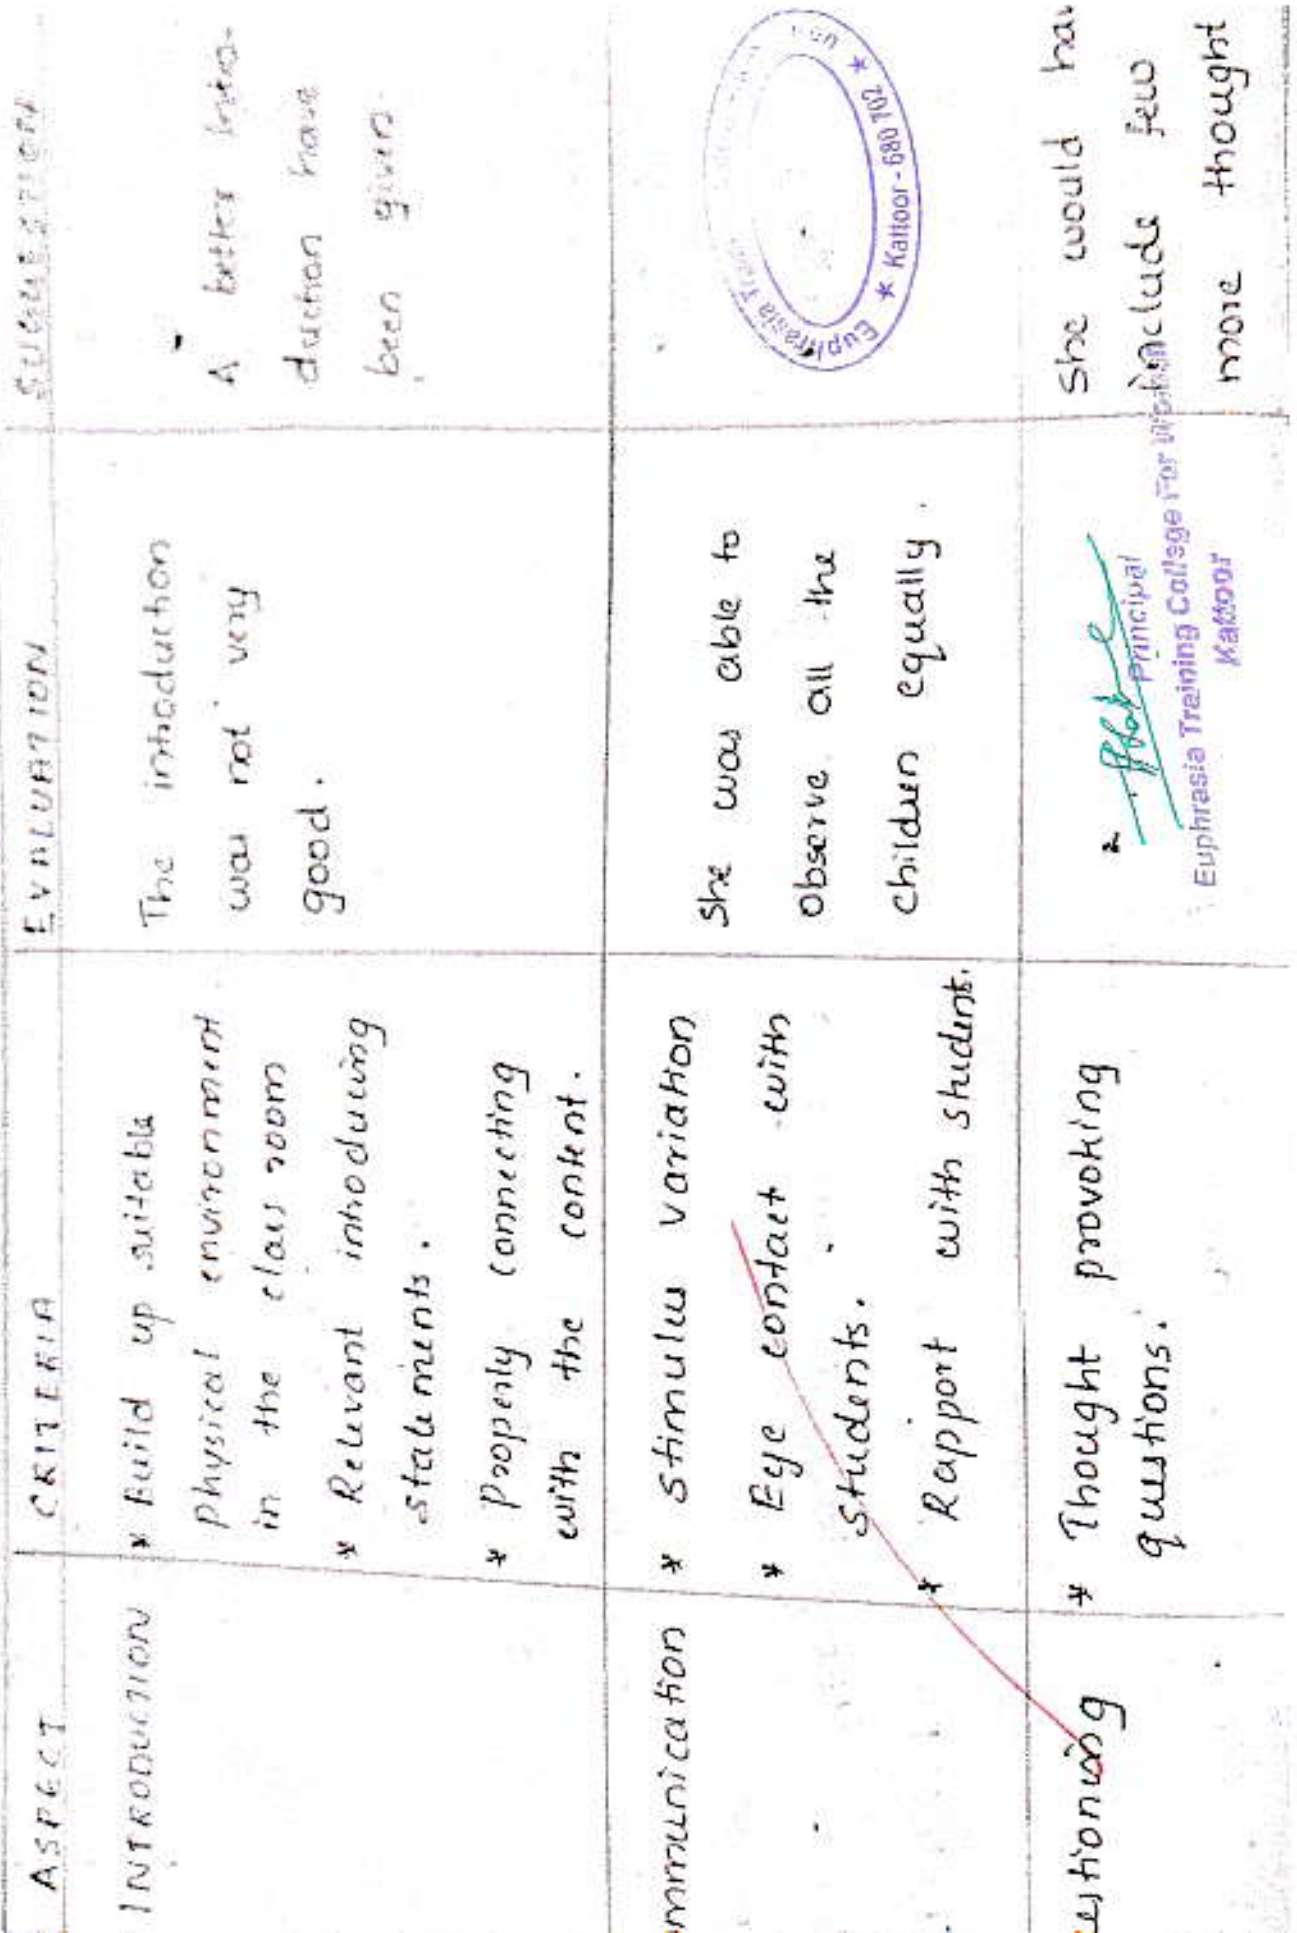 ASPECT CRITERIA EVALUATION SUGGESTION
INTRODUCTION * Build up suitable
Physical environment
in the class room
* Relevant introducing
statements.
* Properly connecting
with the content.
The introduction
was not very
good.
A better intro-
duction have
been given.
mmunication * stimulus variation
* Eye contact with
students.
* Rapport with student.
She was able to
observe all the
children equally.
Euphrasia
* Kattoor - 680 702 *
estioning * Thought provoking
questions.
Principal
Euphrasia Training College For
Kattoor
She would hav
include few
more thought